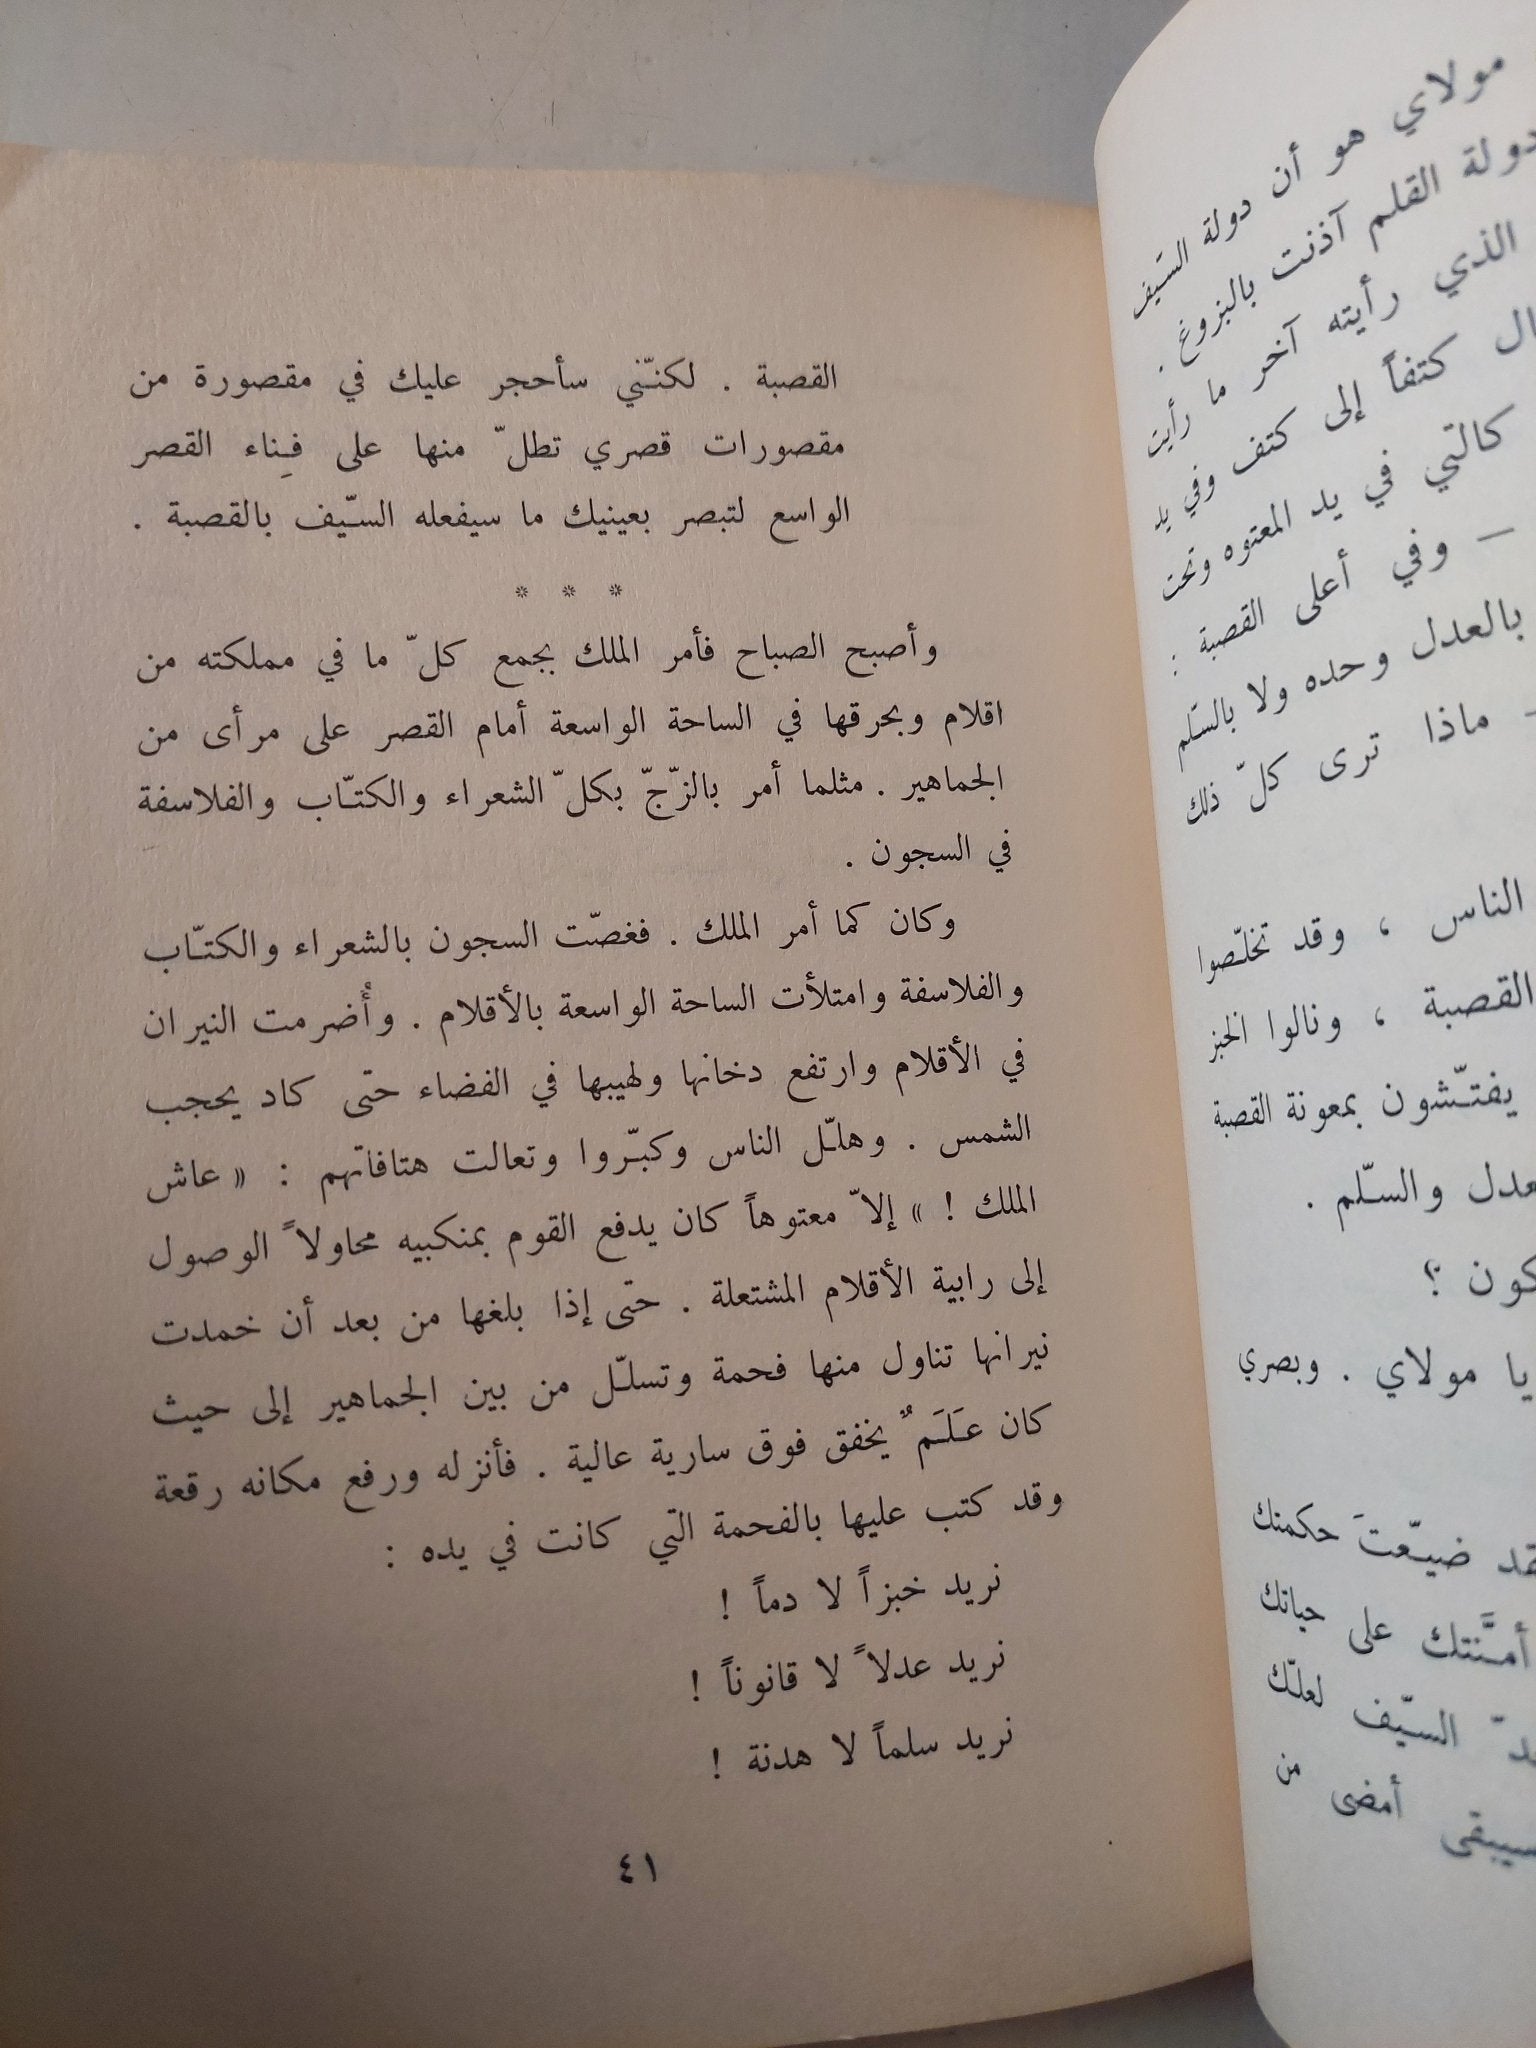 مولاي هو أن دولة السَيف
دولة القلم آذنت بالبزوغ .
الذي رأيته آخر ما رأيت
كتفاً إلى كتف وفي يد
كالتي في يد المعتوه وتحت
– وفي أعلى القصبة :
بالعدل وحده ولا بالسّلم
– ماذا ترى كلّ ذلك
الناس ، وقد تخلّصوا
القصبة ، ونالوا الخبز
يفتّشون بمعونة القصبة
والسّلم .
؟
يا مولاي . وبصري
ضيّعتَ حكمتك
أمّنتك على حياتك
السّيف لعلّك
أمضى من
القصبة . لكنّني سأحجر عليك في مقصورة من
مقصورات قصري تطلّ منها على فِناء القصر
الواسع لتبصر بعينيك ما سيفعله السّيف بالقصبة .
* * *
وأصبح الصباح فأمر الملك بجمع كلّ ما في مملكته من
اقلام وبحرقها في الساحة الواسعة أمام القصر على مرأى من
الجماهير . مثلما أمر بالزّجّ بكلّ الشعراء والكتّاب والفلاسفة
في السجون .
وكان كما أمر الملك . فغصّت السجون بالشعراء والكتّاب
والفلاسفة وامتلأت الساحة الواسعة بالأقلام . وأُضرمت النيران
في الأقلام وارتفع دخانها ولهيبها في الفضاء حتى كاد يحجب
الشمس . وهلّل الناس وكبّروا وتعالت هتافاتهم : « عاش
الملك ! » إلاّ معتوهاً كان يدفع القوم بمنكبيه محاولاً الوصول
إلى رابية الأقلام المشتعلة . حتى إذا بلغها من بعد أن خمدت
نيرانها تناول منها فحمة وتسلّل من بين الجماهير إلى حيث
كان عَلَمٌ يخفق فوق سارية عالية . فأنزله ورفع مكانه رقعة
وقد كتب عليها بالفحمة التي كانت في يده :
نريد خبزاً لا دماً !
نريد عدلاً لا قانوناً !
نريد سلماً لا هدنة !
٤١